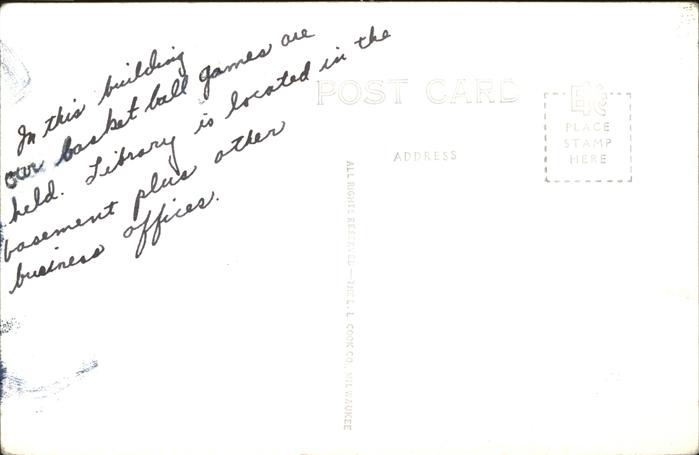 In this building
our basket ball games are
held. Library is located in the
basement plus other
business offices.
POST CARD
ADDRESS
PLACE
STAMP
HERE
ALL RIGHTS RESERVED—THE L. L. COOK CO. MILWAUKEE